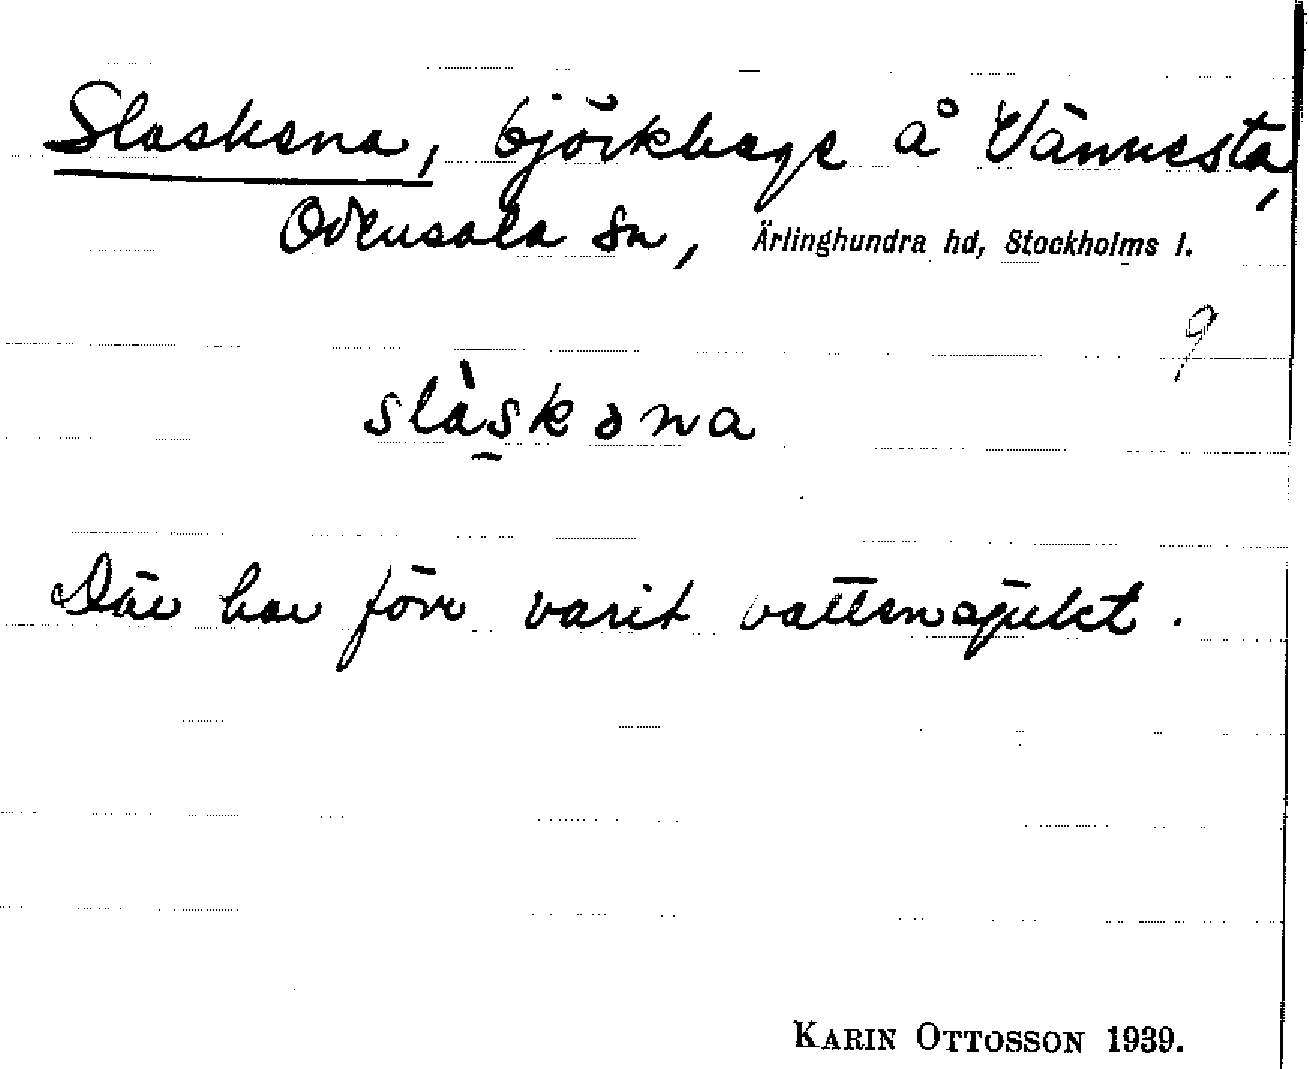 Slaskena, björkhage å Vännesta,
Odensala sn, Ärlinghundra hd, Stockholms l.
9
slàskəna
Där har förr varit vattensjukt.
KARIN OTTOSSON 1939.